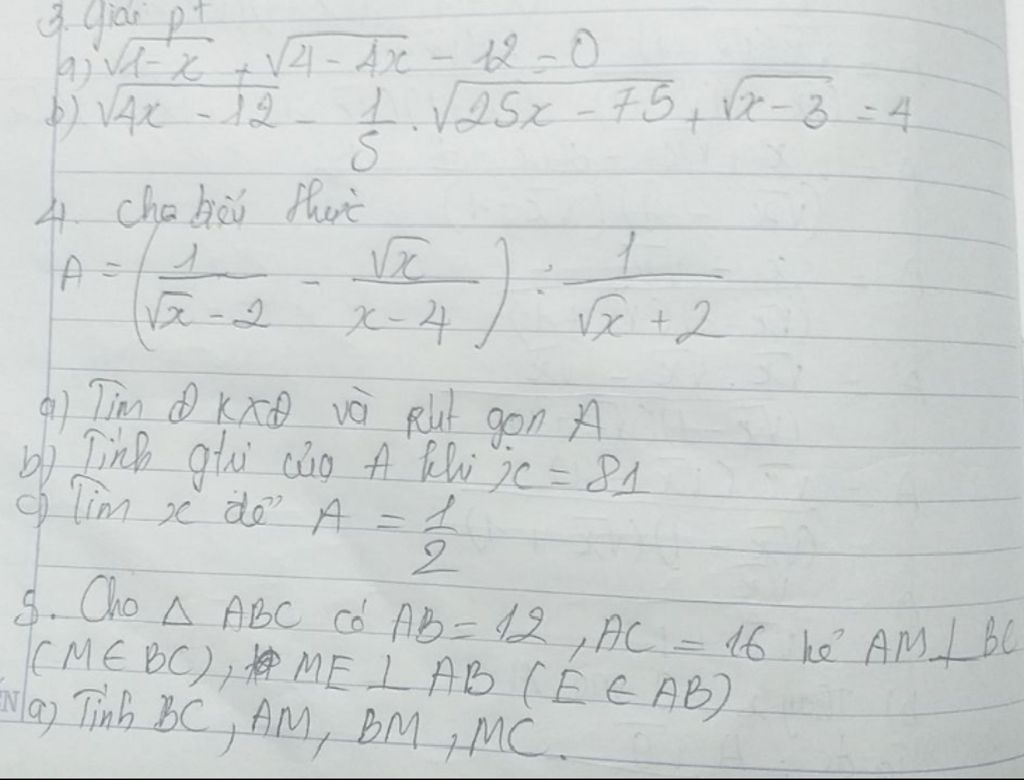 3. Giải pt
a) √1-x + √4-4x - 12 = 0
b) √4x - 12 - 1/5 . √25x - 75 + √x-3 = 4
4. Cho biểu thức
A = (1/(√x - 2) - √x/(x - 4)) : 1/(√x + 2)
a) Tìm ĐKXĐ và Rút gọn A
b) Tính gtri của A khi x = 81
c) Tìm x để A = 1/2
5. Cho △ ABC có AB = 12, AC = 16 kẻ AM ⊥ BC
(M ∈ BC), ME ⊥ AB (E ∈ AB)
a) Tính BC, AM, BM, MC.